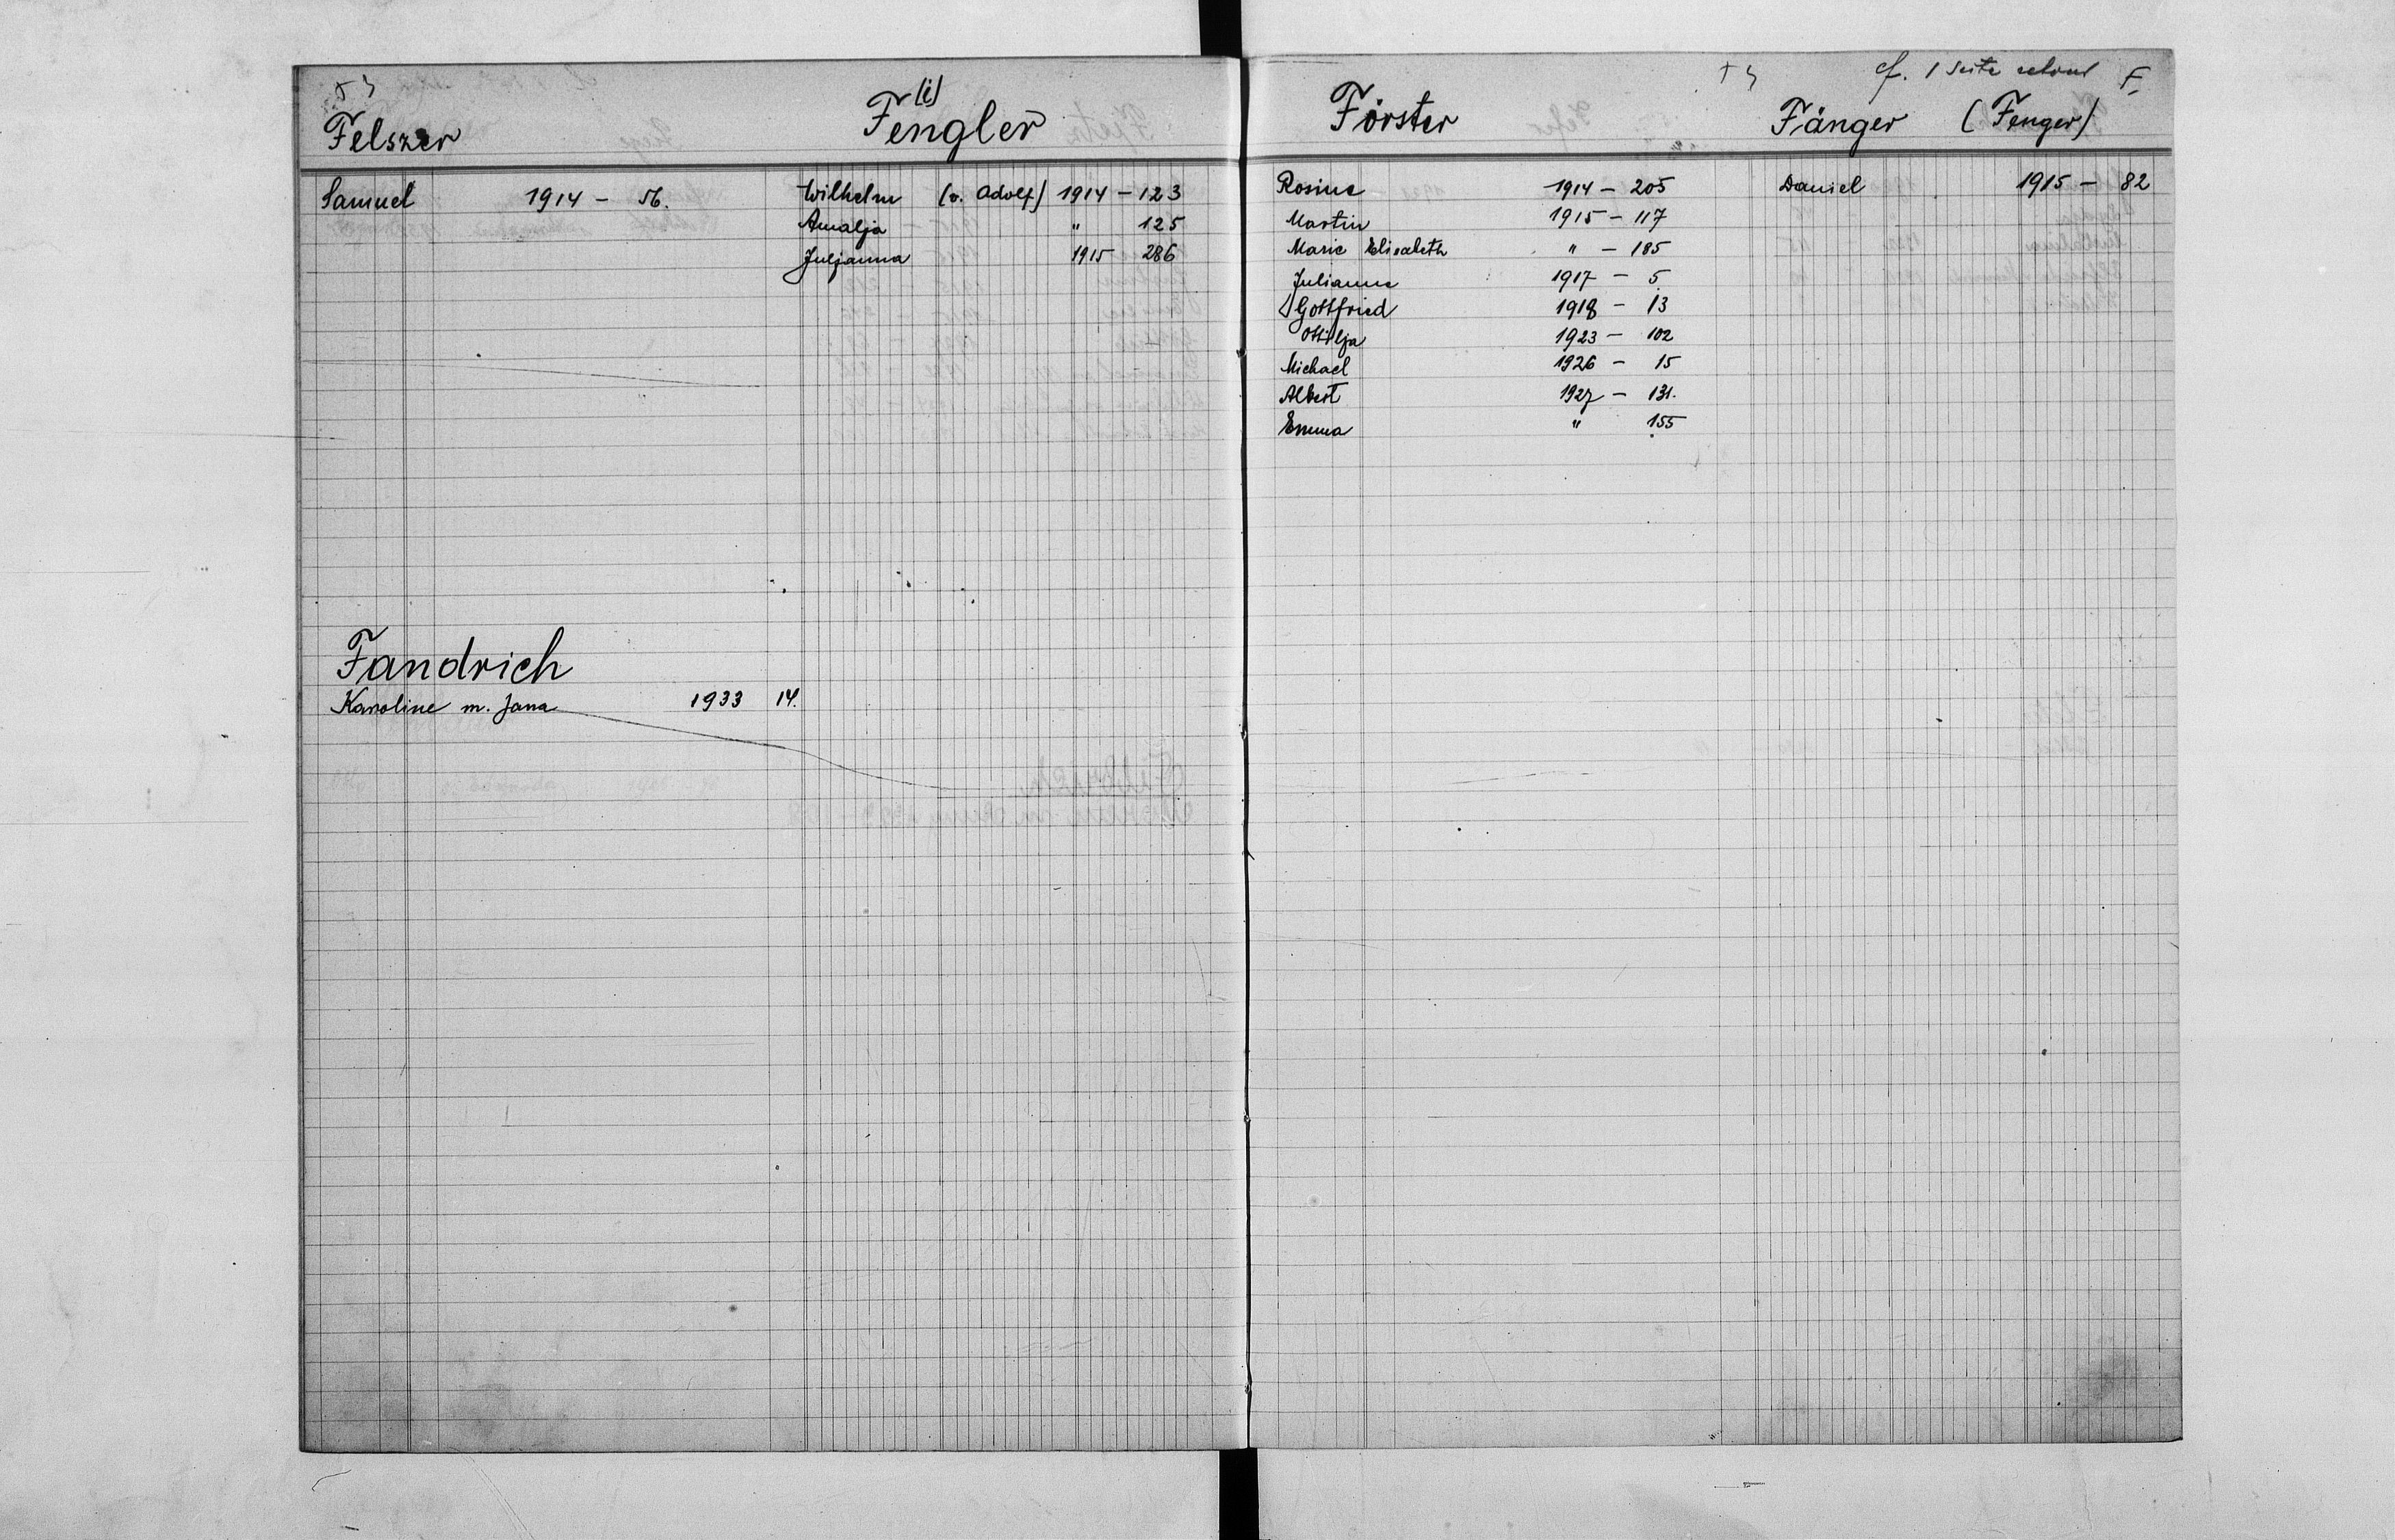 Felszer
Samuel 1914 - 56.
Fandrich
Karoline m. Jana 1933 14.
(i)
Fengler
Wilhelm (v. Adolf) 1914 - 123
Amalja " 125
Juljanna 1915 286
Förster
Rosine 1914 - 205
Martin 1915 - 117
Marie Elisabeth " - 185
Julianne 1917 - 5
Gottfried 1918 - 13
Ottilja 1923 - 102
Michael 1926 - 15
Albert 1927 - 131.
Emma " 155
cf. 1 Seite F.
Fänger (Fenger)
Daniel 1915 - 82